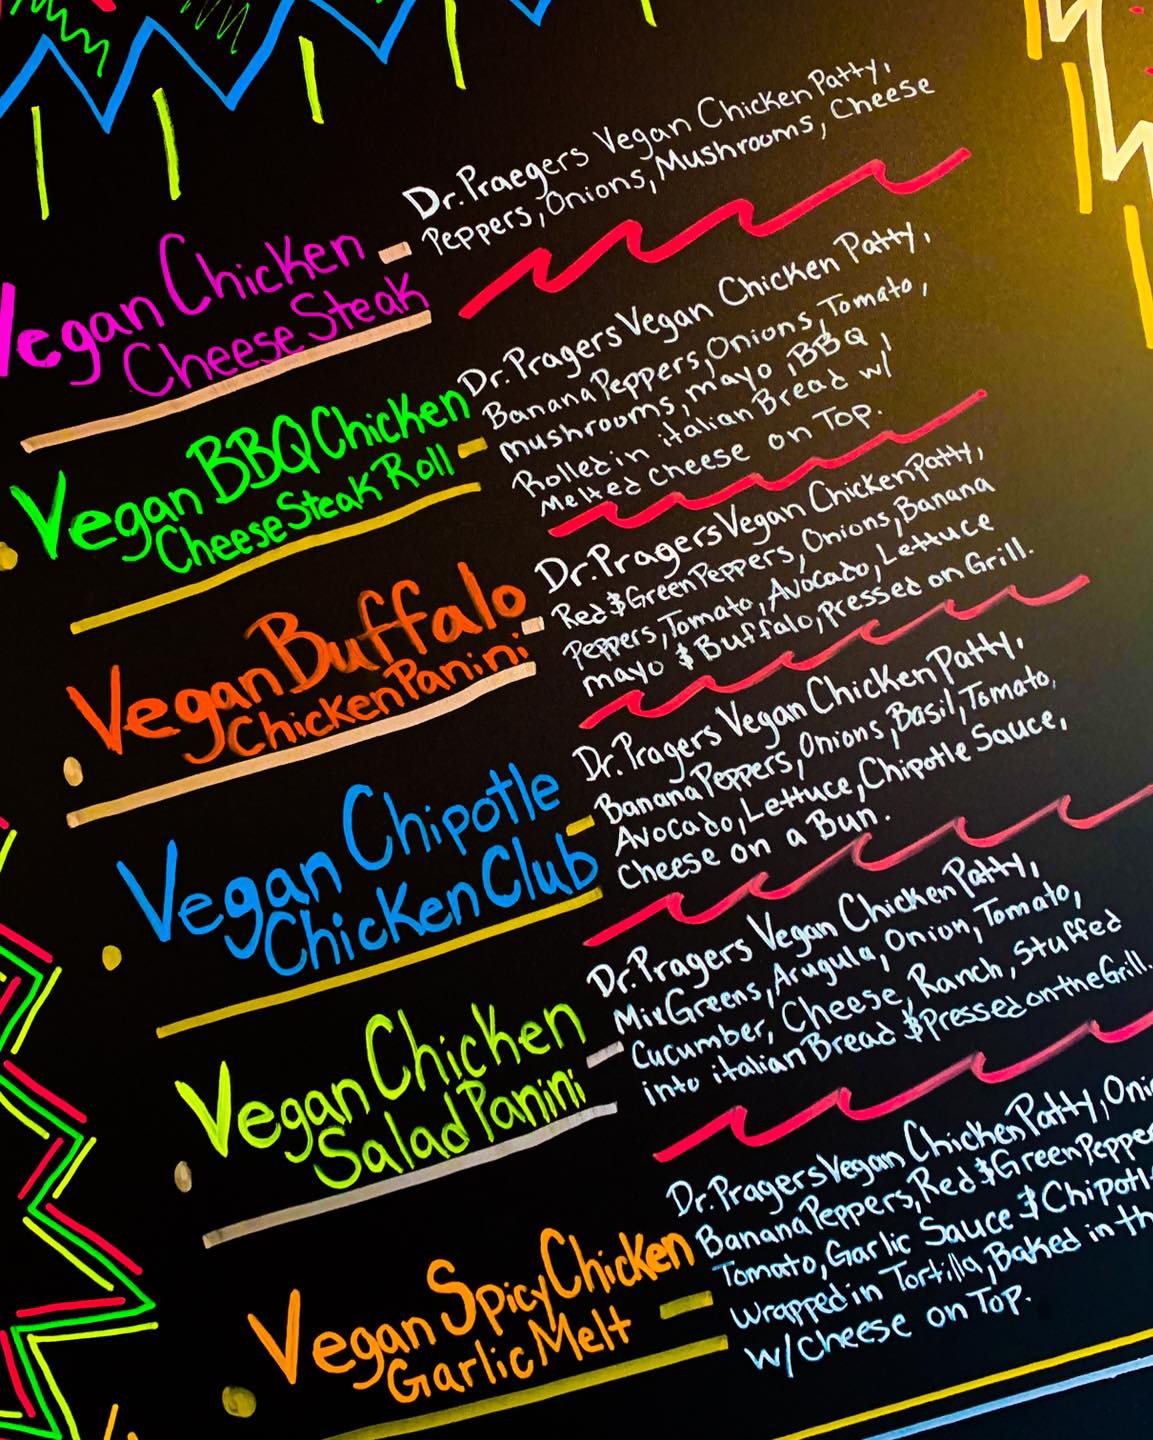 Vegan Chicken
Cheese Steak
Dr. Praegers Vegan Chicken Patty,
Peppers, Onions, Mushrooms, Cheese
Vegan BBQ Chicken
Cheese Steak Roll
Dr. Pragers Vegan Chicken Patty,
Banana Peppers, Onions, Tomato,
mushrooms, mayo, BBQ,
Rolled in italian Bread w/
Melted Cheese on Top.
Vegan Buffalo
Chicken Panini
Dr. Pragers Vegan Chicken Patty,
Red & Green Peppers, Onions, Banana
Peppers, Tomato, Avocado, Lettuce
mayo & Buffalo, pressed on Grill.
Vegan Chipotle
Chicken Club
Dr. Pragers Vegan Chicken Patty,
Banana Peppers, Onions, Basil, Tomato,
Avocado, Lettuce, Chipotle Sauce,
Cheese on a Bun.
Vegan Chicken
Salad Panini
Dr. Pragers Vegan Chicken Patty,
Mix Greens, Arugula, Onion, Tomato,
Cucumber, Cheese, Ranch, Stuffed
into italian Bread & Pressed on the Grill.
Vegan Spicy Chicken
Garlic Melt
Dr. Pragers Vegan Chicken Patty,
Banana Peppers, Red & Green
Tomato, Garlic Sauce &
Wrapped in Tortilla, Baked in
w/ Cheese on Top.